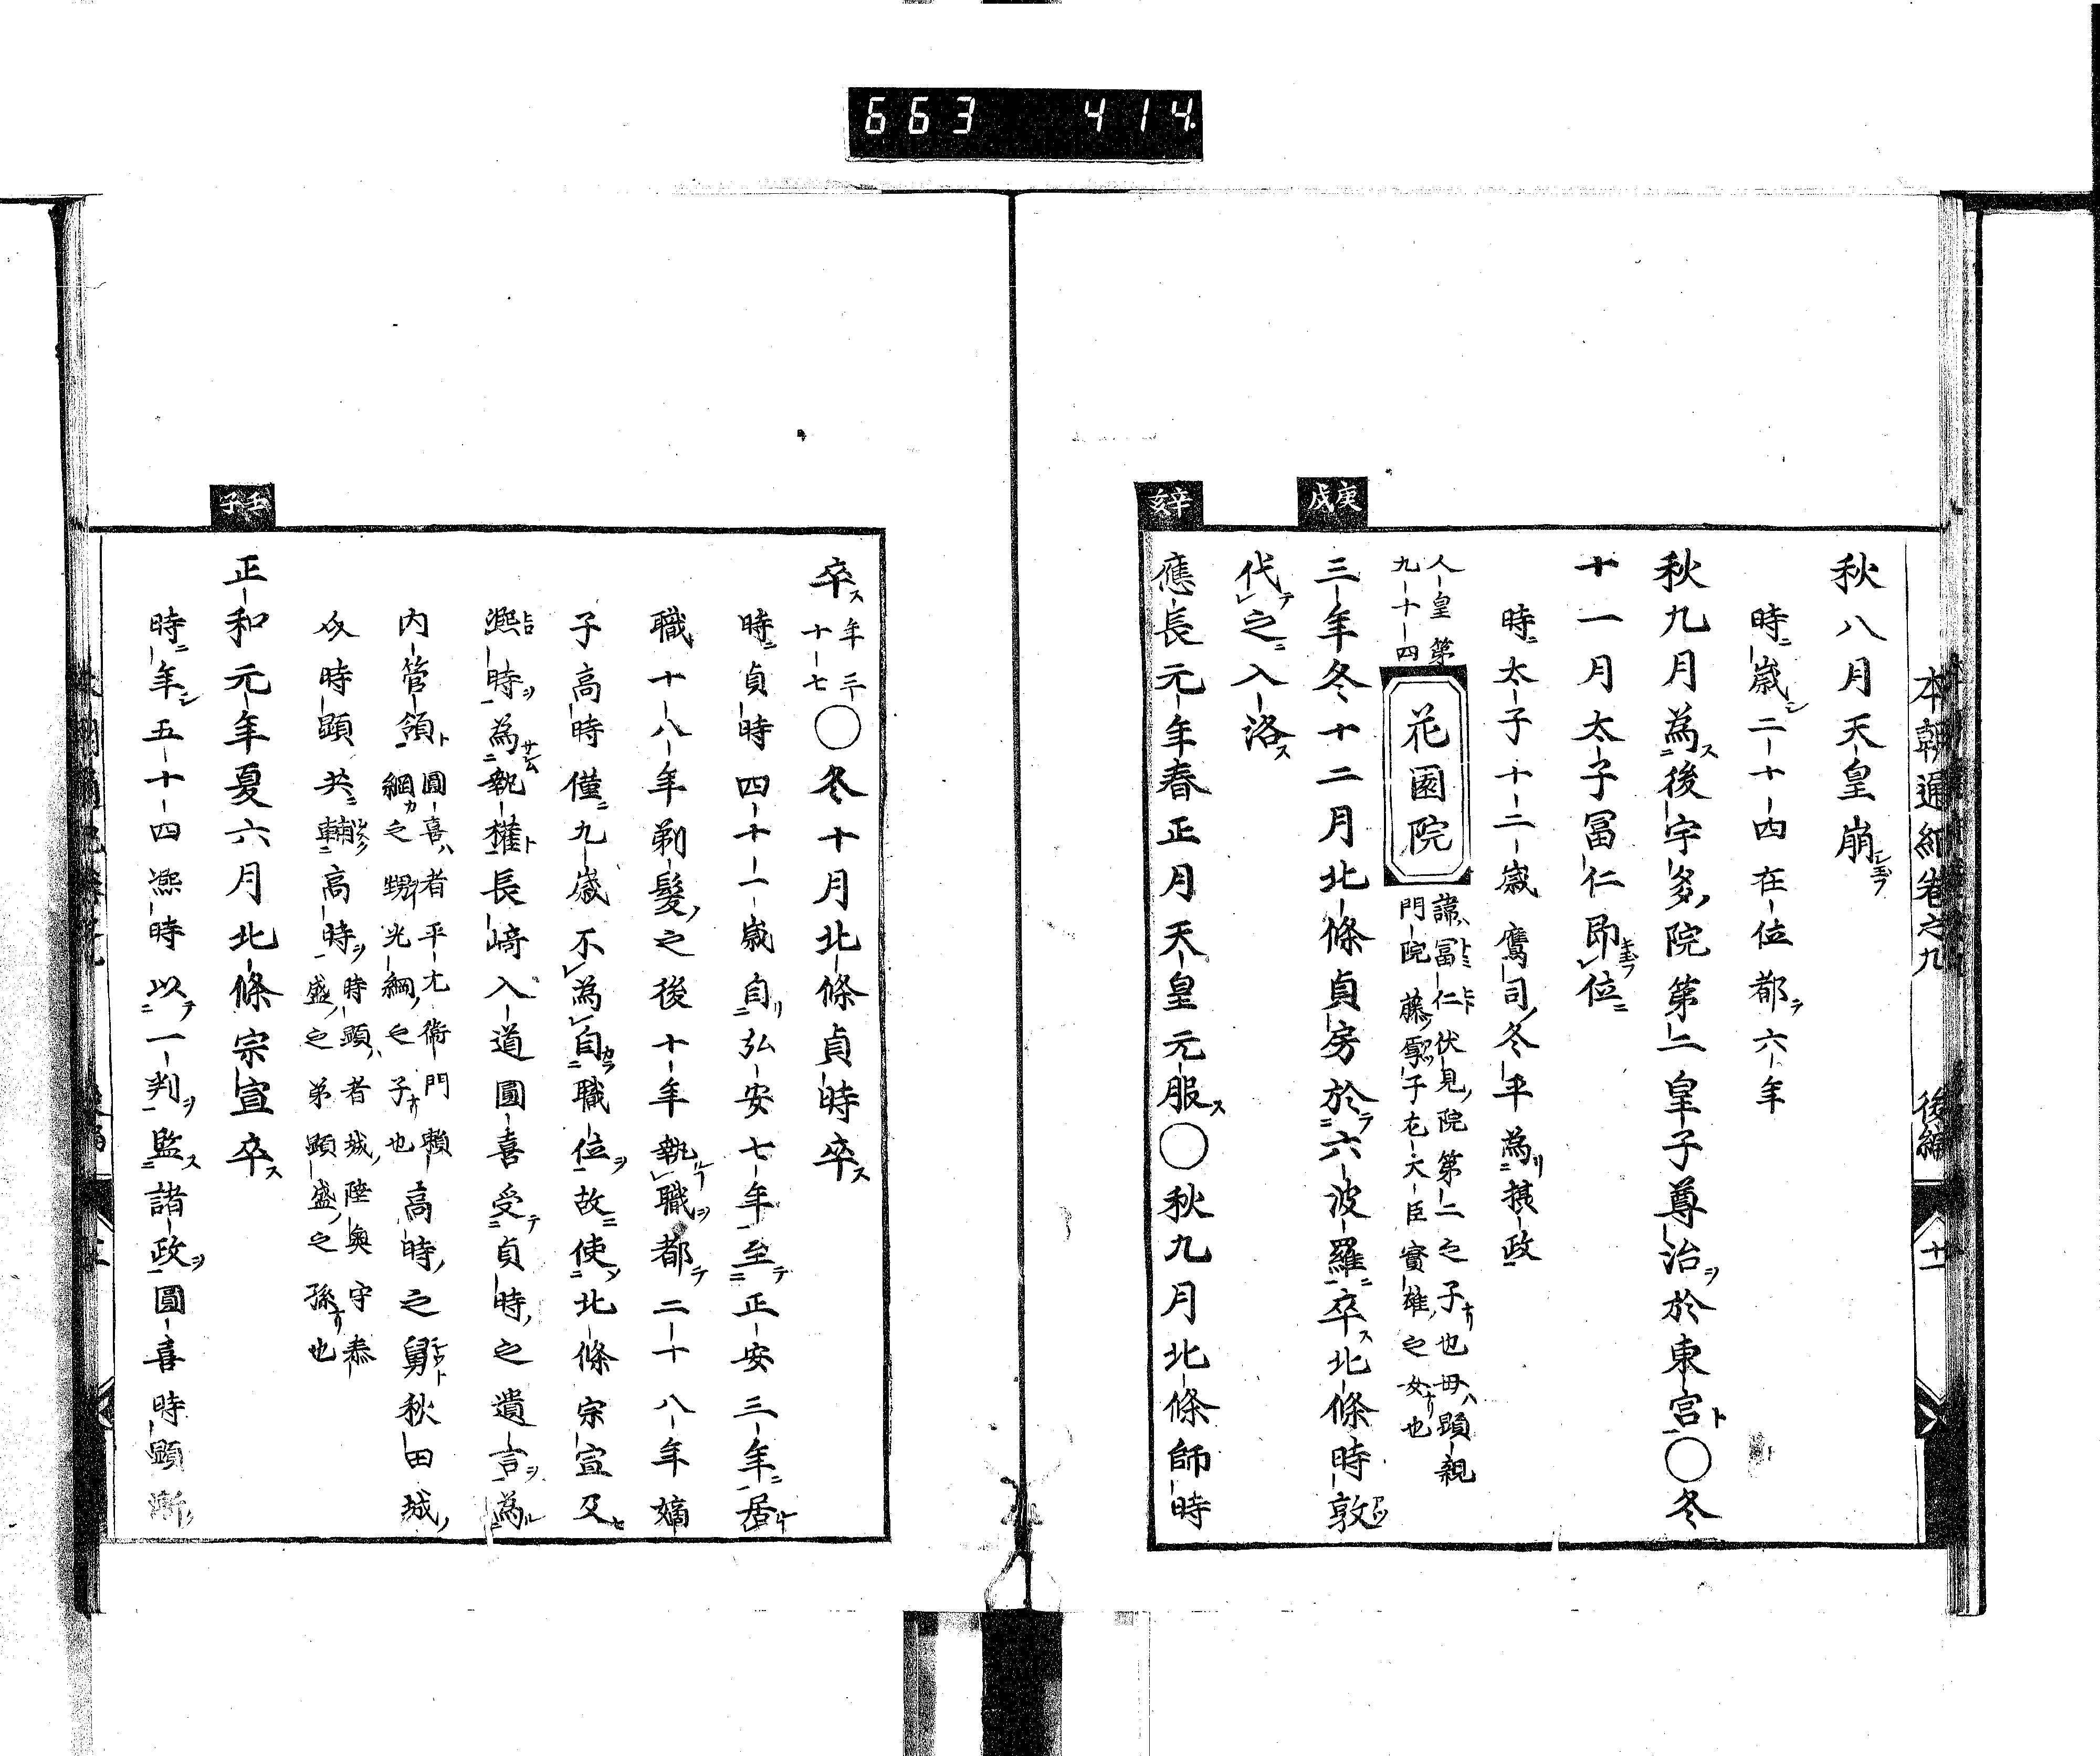 663 414
本朝通紀卷之九 後編 十一
秋八月天皇崩
時歲二十四在位都六年
秋九月為後宇多院第二皇子尊治於東宮○冬
十一月太子冨仁即位
時太子十二歲鷹司冬平為攝政
人皇第
九十四
花園院
諱冨仁伏見院第二之子也母顕親
門院藤原季子左大臣實雄之女也
庚戌
三年冬十二月北條貞房於六波羅卒北條時敦
代之入洛
辛亥
應長元年春正月天皇元服○秋九月北條師時
卒年三
十七○冬十月北條貞時卒
時貞時四十一歲自弘安七年至正安三年居
職十八年剃髮之後十年執職都二十八年嫡
子高時僅九歲不為自職位故使北條宗宣及
凞時為執權長﨑入道圓喜受貞時之遺言為
內管領圓喜者平左衛門頼
綱之甥光綱之子也高時之舅秋田城
時顕共輔高時時顕者城陸奥守泰
盛之弟顕盛之孫也
壬子
正和元年夏六月北條宗宣卒
時年五十四凞時以一判監諸政圓喜時顕漸